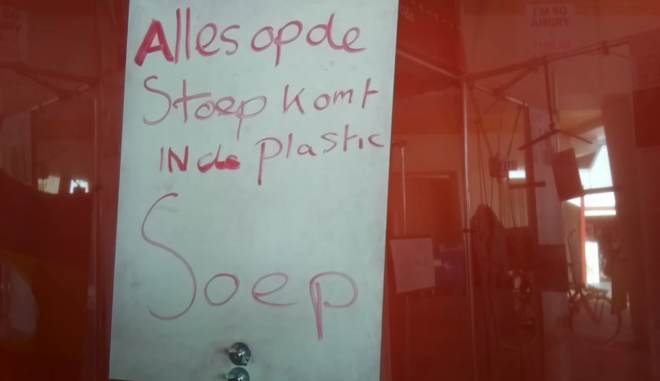 Alles op de
Stoep komt
INde plastic
Soep
I'M SO
ANGRY